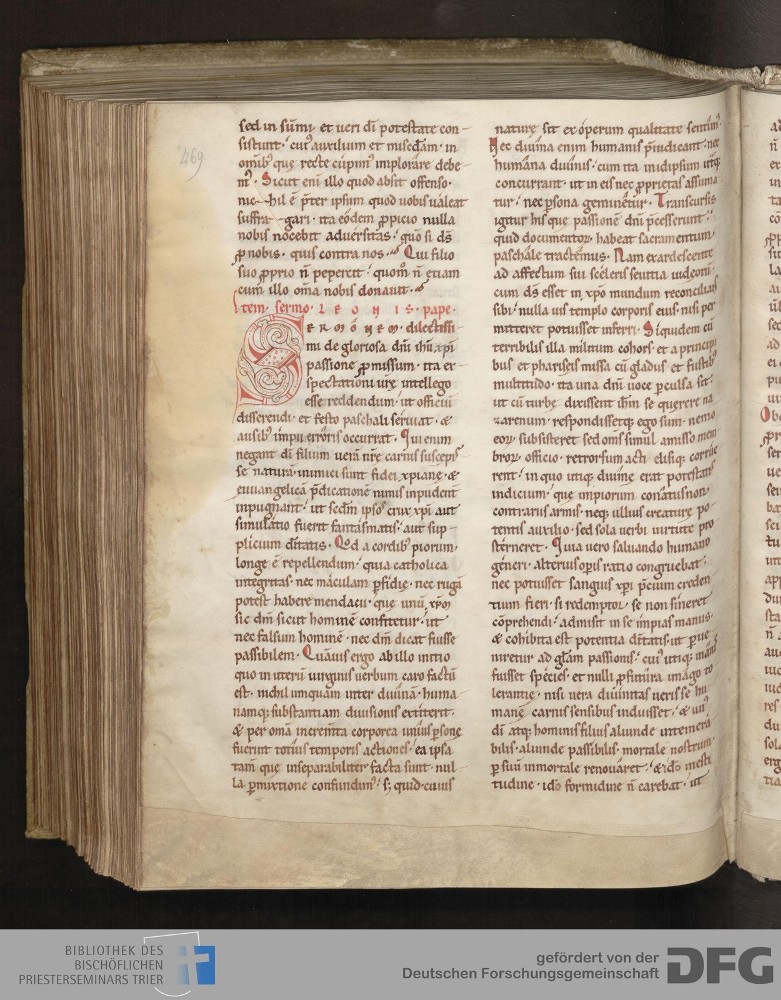 469
sed in sūmi et ueri dī potestate con-
sistunt. cuī auxilium et miscḋam. in
omīb; que recte cūpim; implorare debe-
m;. Sicut enī illo quod absit offenso.
nichil ē pret̄ ipsum quod uobis ualeat
suffragari. ita eodem ꝓpicio nulla
nobis nocebit aduersitas. quō si ds̄
ꝓ nobis. quis contra nos. Qui filio
suo ꝓprio n̄ pepercit. quom̄ n̄ etiam
cum illo om̄a nobis donauit.
Item sermo LEONIS pape.
SERMONEM. dilectissi-
mi de gloriosa dn̄i ih̄u xp̄i
passione ꝓmissum. ita ex-
spectationi ur̄e intellego
esse reddendum. ut officiū
disserendi. et festo paschali seruiat. &
ausib; impii erroris occurrat. Qui enim
negant dī filium uerā nr̄e carnis suscepis-
se naturā. inimici sunt fidei xp̄iane. &
euuangelicā p̄dicationē nimis inpudent̄
inpugnant. ut sedm̄ ipsos crux xp̄i aut
simulatio fuerit fantasmatis. aut sup-
plicium dītatis. Qd a cordib; piorum.
longe ē repellendum. quia catholica
integritas. nec maculam ꝑfidie. nec rugā
potest habere mendacii. que unū xp̄m
sic dm̄ sicut hominē confitetur. ut
nec falsum hominē. nec dm̄ dicat fuisse
passibilem. Quāuis ergo ab illo initio
quo in uterū uirginis uerbum caro factū
est. nichil umquam inter diuinā. huma-
namq; substantiam diuisionis extiterit.
& per om̄a incrementa corporea unius psone
fuerint totius temporis actiones. ea ipsa
tam̄ que inseparabiliter facta sunt. nul-
la ꝑmixtione confundim;. s; quid cuius
nature sit ex operum qualitate sentim;.
Nec diuina enim humanis p̄iudicant. nec
humana diuinis. cum ita in idipsum utq;
concurrant. ut in eis nec ꝓprietas assuma-
tur. nec psona geminetur. Transcursis
igitur his que passionē dn̄i p̄cesserunt.
quid documentor̄ habeat sacramentum
paschale tractemus. Nam exardescente
ad affectum sui sceleris seuitia iudeor̄.
cum ds̄ esset in xp̄o mundum reconcilians
sibi. nulla uis templo corporis eius. nisi per-
mitteret potuisset inferri. Siquidem cū
terribilis illa militum cohors. et a principi-
bus et phariseis missa cū gladiis et fustib;
multitudo. ita una dn̄i uoce ꝑculsa sit.
ut cū turbe dixissent ih̄m se querere na-
zarenum. respondissetq; ego sum. nemo
eor̄ subsisteret sed om̄s simul amisso mem-
bror̄ officio. retrorsum acti elisiq; corrue-
rent. in quo utiq; diuine erat potestatis
indicium. que impiorum conatus non
contrariis armis. neq; ullius creature po-
tentis auxilio. sed sola uerbi uirtute pro-
sterneret. Quia uero saluando humano
generi. alterius opis ratio congruebat.
nec potuisset sanguis xp̄i p̄cium creden-
tium fieri. si redemptor. se non sineret
cōprehendi. admisit in se impias manus.
& cohibita est potentia dītatis. ut ꝑue-
niretur ad gl̄am passionis. cui; utiq; inanis
fuisset species. et nulli ꝓfutura imago to-
lerantie. nisi uera diuinitas ueris se hu-
mane carnis sensibus induisset. & un;
dī atq; hominis filius aliunde intemera-
bilis. aliunde passibilis. mortale nostrum.
ꝑ suū inmortale renouaret. & idō mesti-
tudine. idō formidine n̄ carebat. ut
BIBLIOTHEK DES
BISCHÖFLICHEN
PRIESTERSEMINARS TRIER
gefördert von der
Deutschen Forschungsgemeinschaft
DFG